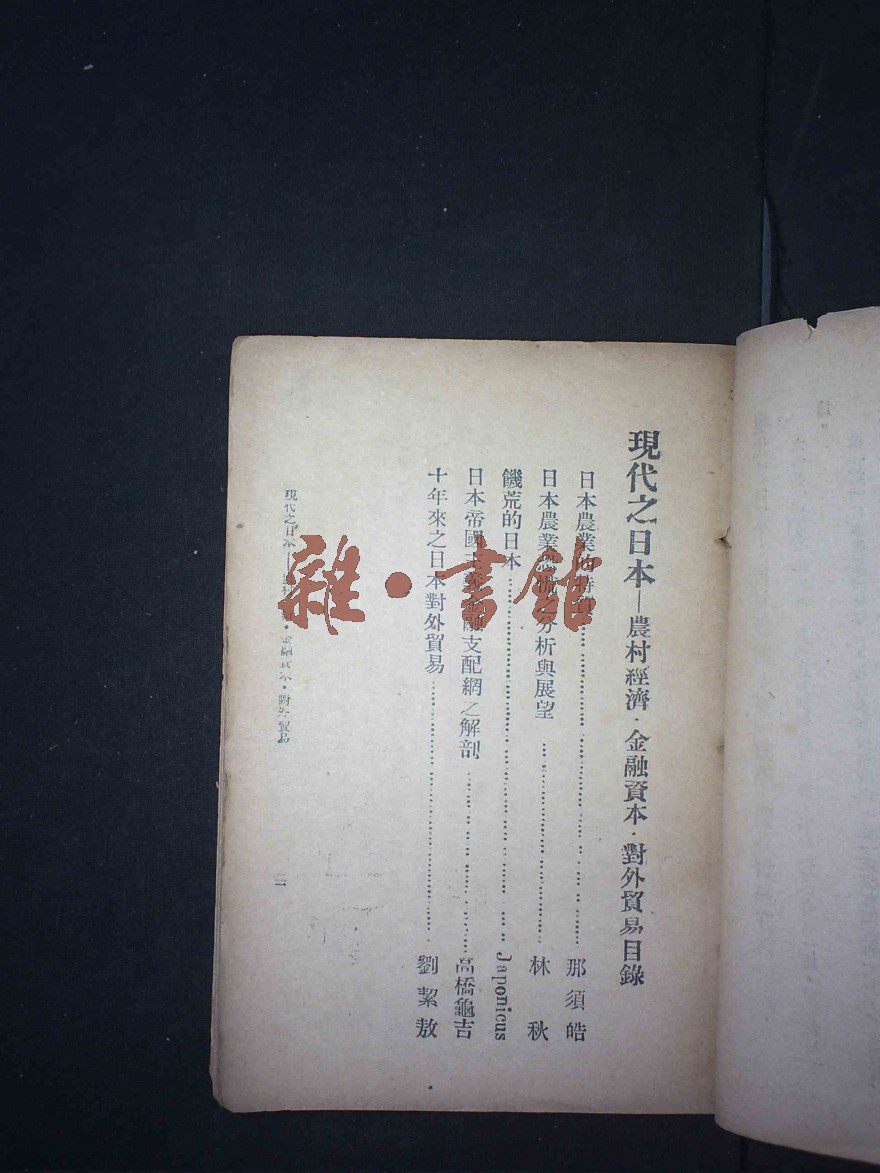 現代之日本—農村經濟·金融資本·對外貿易目錄
日本農業的特質……那須皓
日本農業恐慌之分析與展望……林秋
饑荒的日本……Japonicus
日本帝國主義金融支配網之解剖……高橋龜吉
十年來之日本對外貿易……劉絜敖
現代之日本—農村經濟·金融資本·對外貿易
二
雜·書館